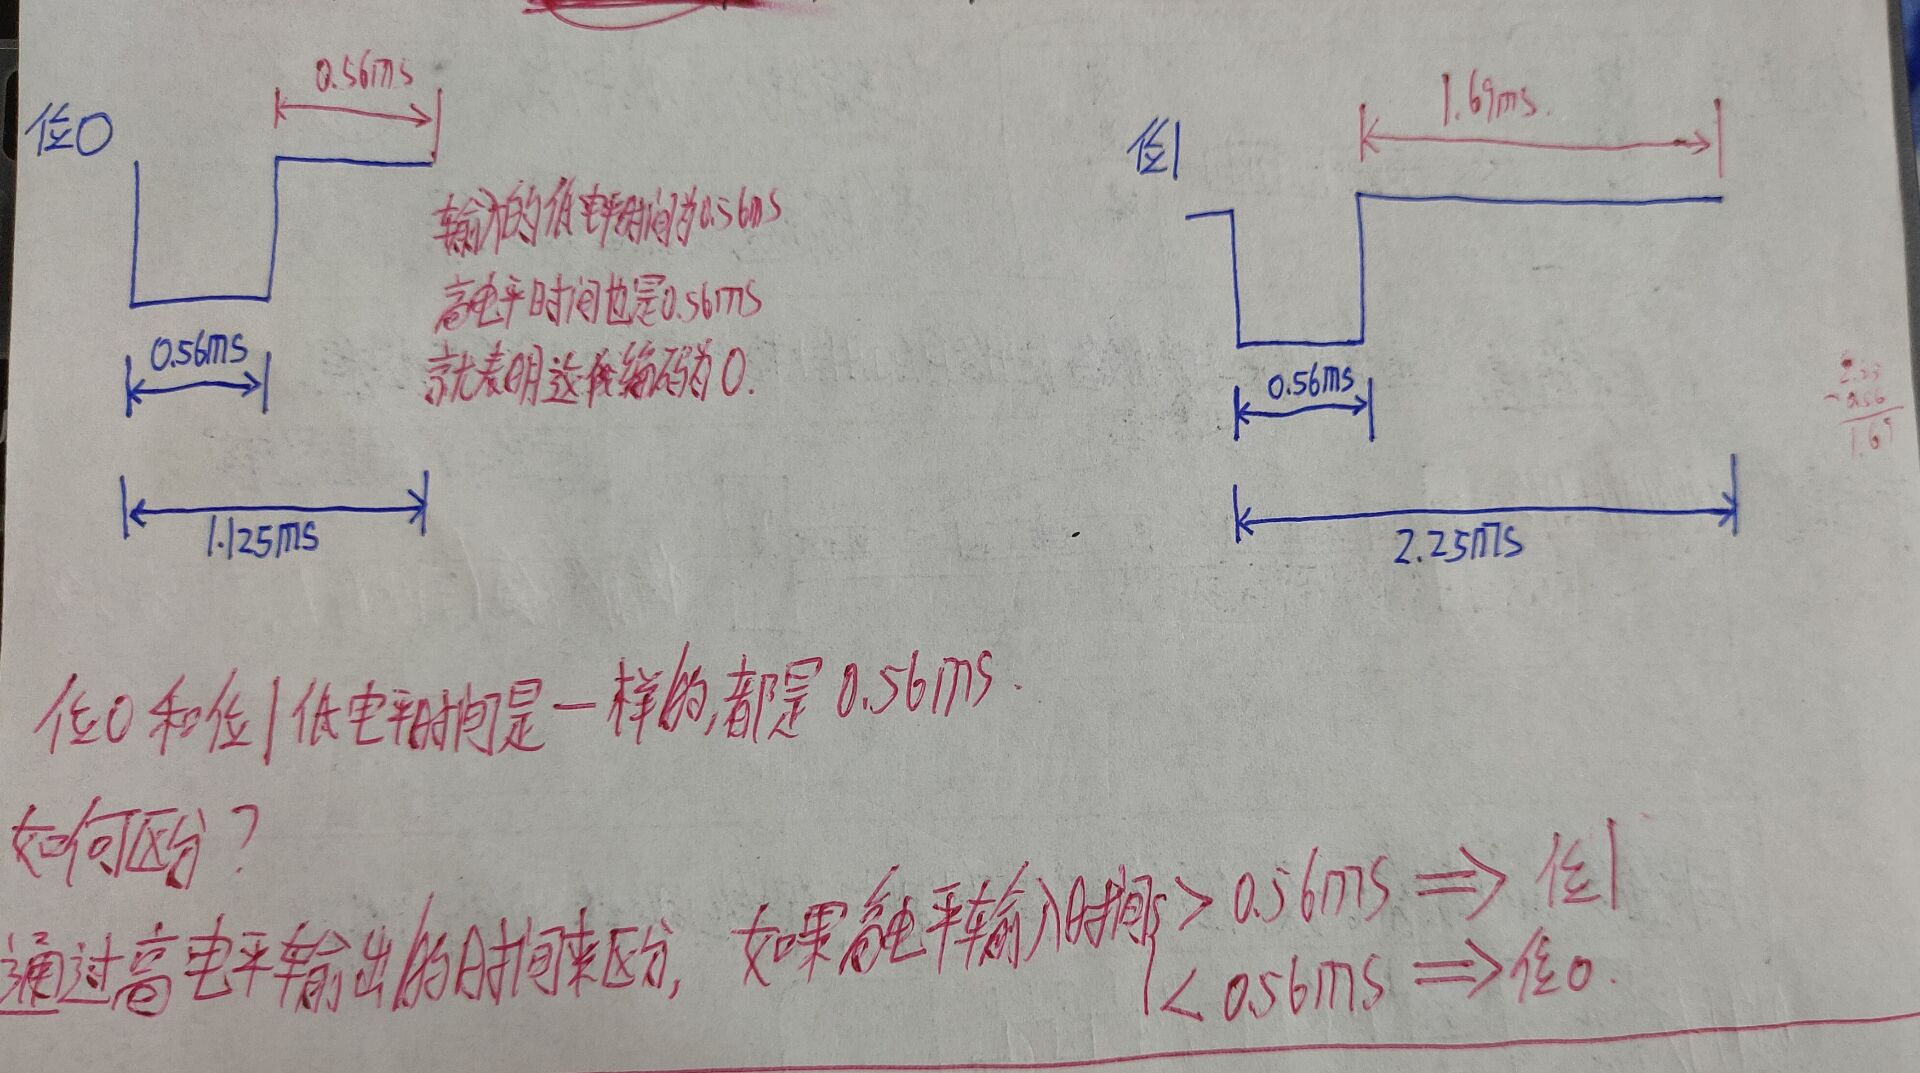 0.56ms
位0
0.56ms
1.125ms
输入的低电平时间为0.56ms
高电平时间也是0.56ms
就表明这位编码为0.
1.69ms.
位1
0.56ms
2.25ms
2.25
-0.56
1.69
位0和位1低电平时间是一样的,都是0.56ms.
如何区分?
通过高电平输出的时间来区分, 如果高电平输入时间 > 0.56ms ⇒ 位1
< 0.56ms ⇒ 位0.